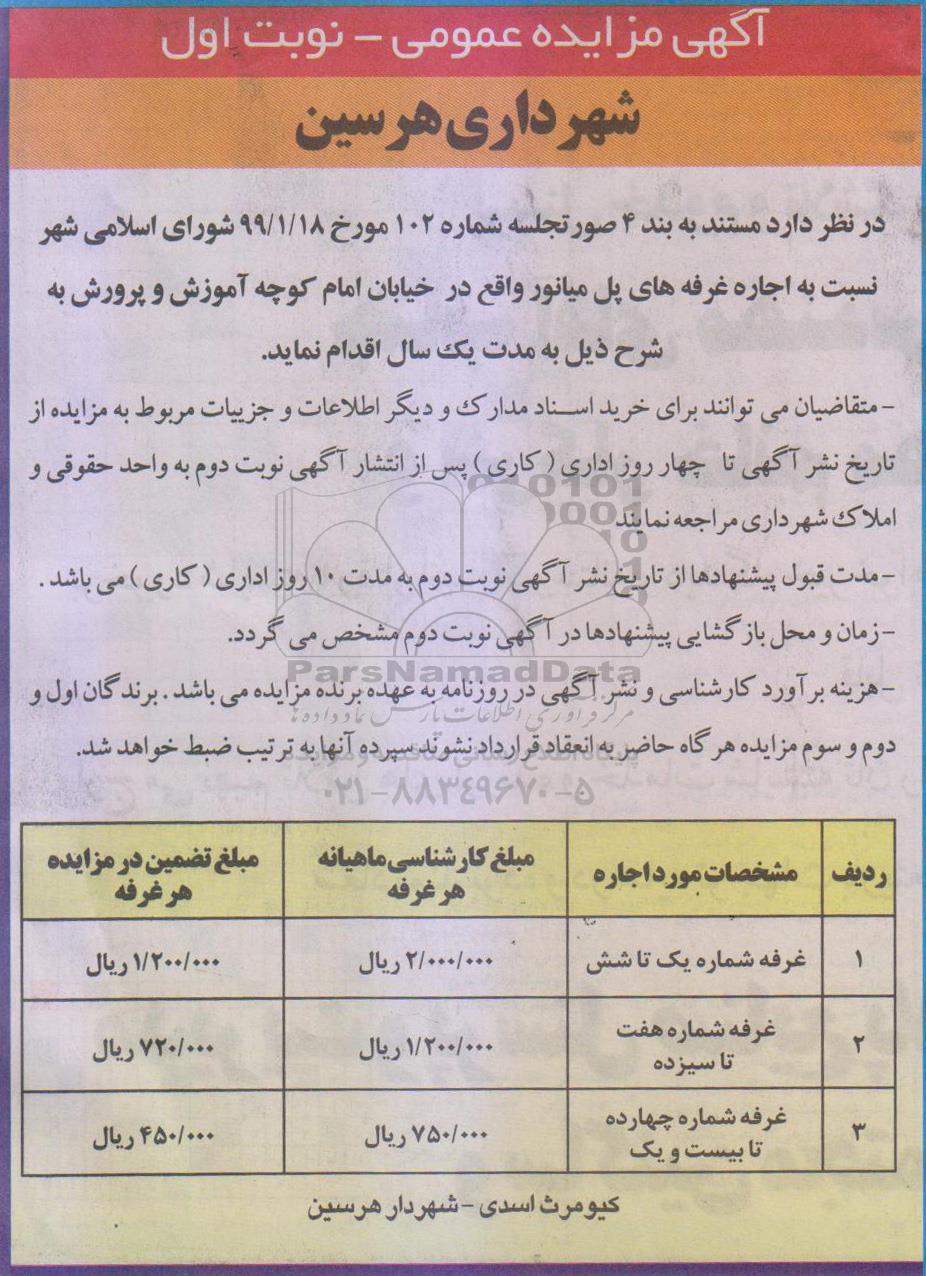 آگهی مزایده عمومی - نوبت اول
شهرداری هرسین
در نظر دارد مستند به بند ۴ صورتجلسه شماره ۱۰۲ مورخ ۹۹/۱/۱۸ شورای اسلامی شهر
نسبت به اجاره غرفه های پل میانور واقع در خیابان امام کوچه آموزش و پرورش به
شرح ذیل به مدت یک سال اقدام نماید.
- متقاضیان می توانند برای خرید اسناد مدارک و دیگر اطلاعات و جزییات مربوط به مزایده از
تاریخ نشر آگهی تا چهار روز اداری ( کاری ) پس از انتشار آگهی نوبت دوم به واحد حقوقی و
املاک شهرداری مراجعه نمایند
- مدت قبول پیشنهادها از تاریخ نشر آگهی نوبت دوم به مدت ۱۰ روز اداری ( کاری ) می باشد .
- زمان و محل بازگشایی پیشنهادها در آگهی نوبت دوم مشخص می گردد.
ParsNamadData
- هزینه برآورد کارشناسی و نشر آگهی در روزنامه به عهده برنده مزایده می باشد . برندگان اول و
مرکز فرآوری اطلاعات پارس نماد داده ها
دوم و سوم مزایده هر گاه حاضر به انعقاد قرارداد نشوند سپرده آنها به ترتیب ضبط خواهد شد.
۰۲۱-۸۸۳۴۹۶۷۰-۵
ردیف مشخصات مورد اجاره مبلغ کارشناسی ماهیانه هر غرفه مبلغ تضمین در مزایده هر غرفه
۱ غرفه شماره یک تا شش ۲/۰۰۰/۰۰۰ ریال ۱/۲۰۰/۰۰۰ ریال
۲ غرفه شماره هفت تا سیزده ۱/۲۰۰/۰۰۰ ریال ۷۲۰/۰۰۰ ریال
۳ غرفه شماره چهارده تا بیست و یک ۷۵۰/۰۰۰ ریال ۴۵۰/۰۰۰ ریال
کیومرث اسدی - شهردار هرسین